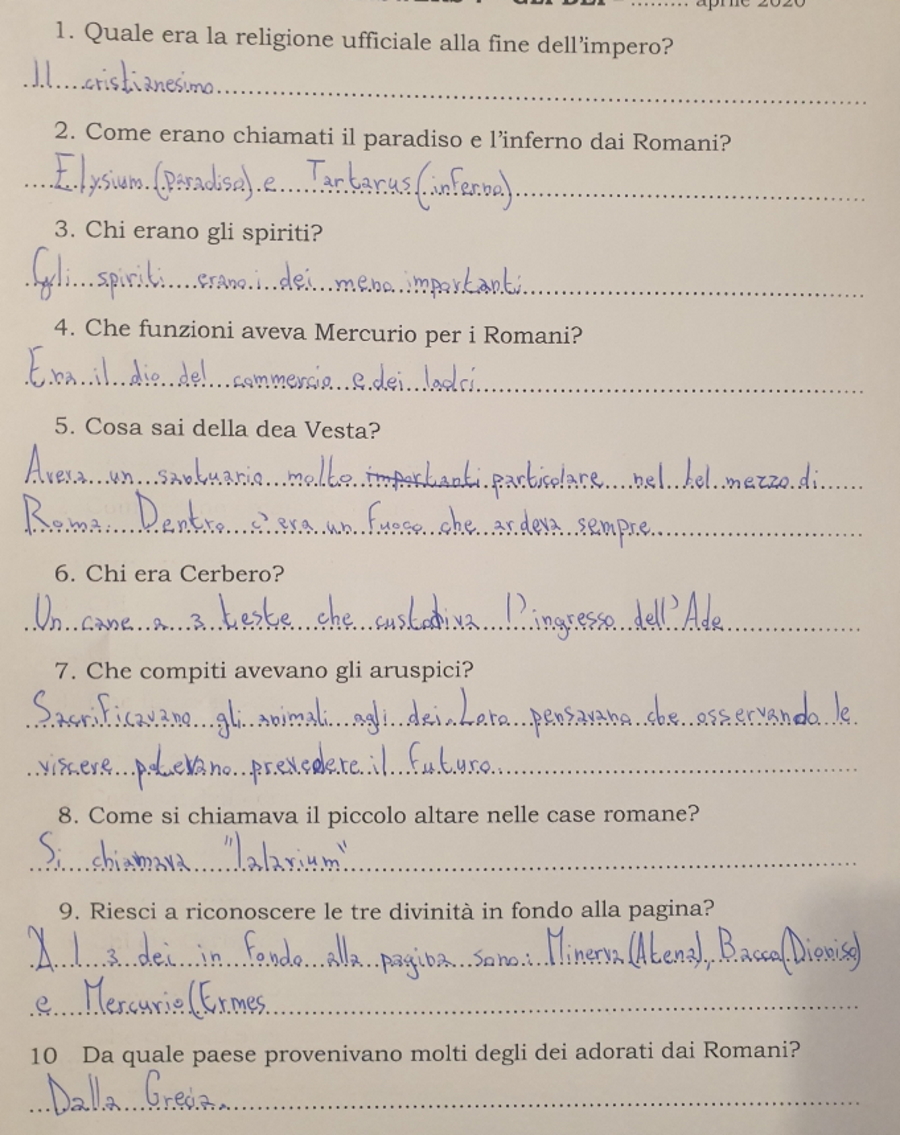 GLI DEI – ......... aprile 2020
1. Quale era la religione ufficiale alla fine dell'impero?
Il cristianesimo
2. Come erano chiamati il paradiso e l'inferno dai Romani?
Elysium (paradiso) e Tartarus (inferno)
3. Chi erano gli spiriti?
Gli spiriti erano i dei meno importanti
4. Che funzioni aveva Mercurio per i Romani?
Era il dio del commercio e dei ladri
5. Cosa sai della dea Vesta?
Aveva un santuario molto importanti particolare nel bel mezzo di
Roma. Dentro c'era un fuoco che ardeva sempre
6. Chi era Cerbero?
Un cane a 3 teste che custodiva l'ingresso dell'Ade
7. Che compiti avevano gli aruspici?
Sacrificavano gli animali agli dei. Loro pensavano che osservando le
viscere potevano prevedere il futuro.
8. Come si chiamava il piccolo altare nelle case romane?
Si chiamava "lalarium"
9. Riesci a riconoscere le tre divinità in fondo alla pagina?
I 3 dei in fondo alla pagina sono: Minerva (Atena), Bacco (Dioniso)
e Mercurio (Ermes
10 Da quale paese provenivano molti degli dei adorati dai Romani?
Dalla Grecia.